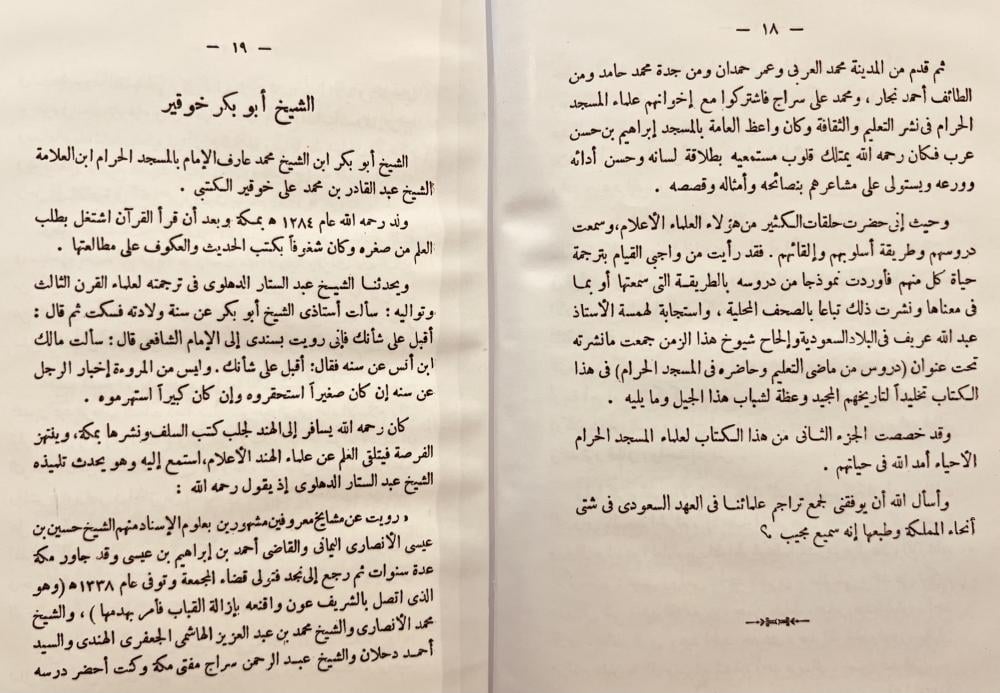 — ١٨ —
ثم قدم من المدينة محمد العربى وعمر حمدان ومن جدة محمد حامد ومن
الطائف أحمد نجار ، ومحمد على سراج فاشتركوا مع إخوانهم علماء المسجد
الحرام فى نشر التعليم والثقافة وكان واعظ العامة بالمسجد إبراهيم بن حسن
عرب فكان رحمه الله يمتلك قلوب مستمعيه بطلاقة لسانه وحسن أدائه
وورعه ويستولى على مشاعرهم بنصائحه وأمثاله وقصصه .
وحيث إنى حضرت حلقات الكثير من هؤلاء العلماء الأعلام، وسمعت
دروسهم وطريقة أسلوبهم وإلقائهم . فقد رأيت من واجبى القيام بترجمة
حياة كل منهم فأوردت نموذجا من دروسه بالطريقة التى سمعتها أو بما
فى معناها ونشرت ذلك تباعا بالصحف المحلية ، واستجابة لهمسة الأستاذ
عبد الله عريف فى البلاد السعودية وإلحاح شيوخ هذا الزمن جمعت مانشرته
تحت عنوان (دروس من ماضى التعليم وحاضره فى المسجد الحرام) فى هذا
الكتاب تخليداً لتاريخهم المجيد وعظة لشباب هذا الجيل وما يليه .
وقد خصصت الجزء الثانى من هذا الكتاب لعلماء المسجد الحرام
الأحياء أمد الله فى حياتهم .
وأسأل الله أن يوفقنى لجمع تراجم علمائنا فى العهد السعودى فى شتى
أنحاء المملكة وطبعها إنه سميع مجيب ؟
— ١٩ —
الشيخ أبو بكر خوقير
الشيخ أبو بكر ابن الشيخ محمد عارف الإمام بالمسجد الحرام ابن العلامة
الشيخ عبد القادر بن محمد على خوقير الكتبى .
ولد رحمه الله عام ١٢٨٤ ه بمكة وبعد أن قرأ القرآن اشتغل بطلب
العلم من صغره وكان شغوفاً بكتب الحديث والعكوف على مطالعتها .
ويحدثنا الشيخ عبد الستار الدهلوى فى ترجمته لعلماء القرن الثالث
وتواليه : سألت أستاذى الشيخ أبو بكر عن سنة ولادته فسكت ثم قال :
أقبل على شأنك فإنى رويت بسندى إلى الإمام الشافعى قال : سألت مالك
ابن أنس عن سنه فقال: أقبل على شأنك . وليس من المروءة إخبار الرجل
عن سنه إن كان صغيراً استحقروه وإن كان كبيراً استهرموه .
كان رحمه الله يسافر إلى الهند لجلب كتب السلف ونشرها بمكة، وينتهز
الفرصة فيتلقى العلم عن علماء الهند الأعلام، استمع إليه وهو يحدث تلميذه
الشيخ عبد الستار الدهلوى إذ يقول رحمه الله :
« رويت عن مشايخ معروفين مشهورين بعلوم الإسناد منهم الشيخ حسين بن
عيسى الأنصارى اليمانى والقاضى أحمد بن إبراهيم بن عيسى وقد جاور مكة
عدة سنوات ثم رجع إلى نجد فتولى قضاء المجمعة وتوفى عام ١٣٣٨ ه (وهو
الذى اتصل بالشريف عون واقنعه بإزالة القباب فأمر بهدمها ) ، والشيخ
محمد الأنصارى والشيخ محمد بن عبد العزيز الهاشمى الجعفرى الهندى والسيد
أحمد دحلان والشيخ عبد الرحمن سراج مفتى مكة وكنت أحضر درسه